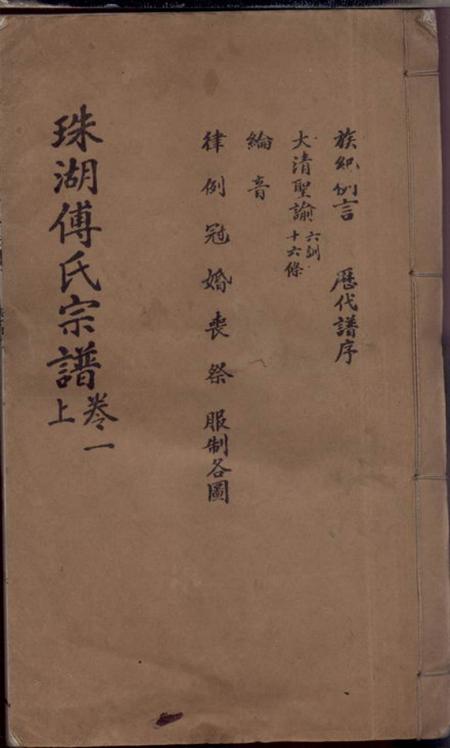 族紀例言 歷代譜序
大清聖諭 六訓 十六條
綸音
律例冠婚喪祭服制各圖
珠湖傅氏宗譜 卷一上